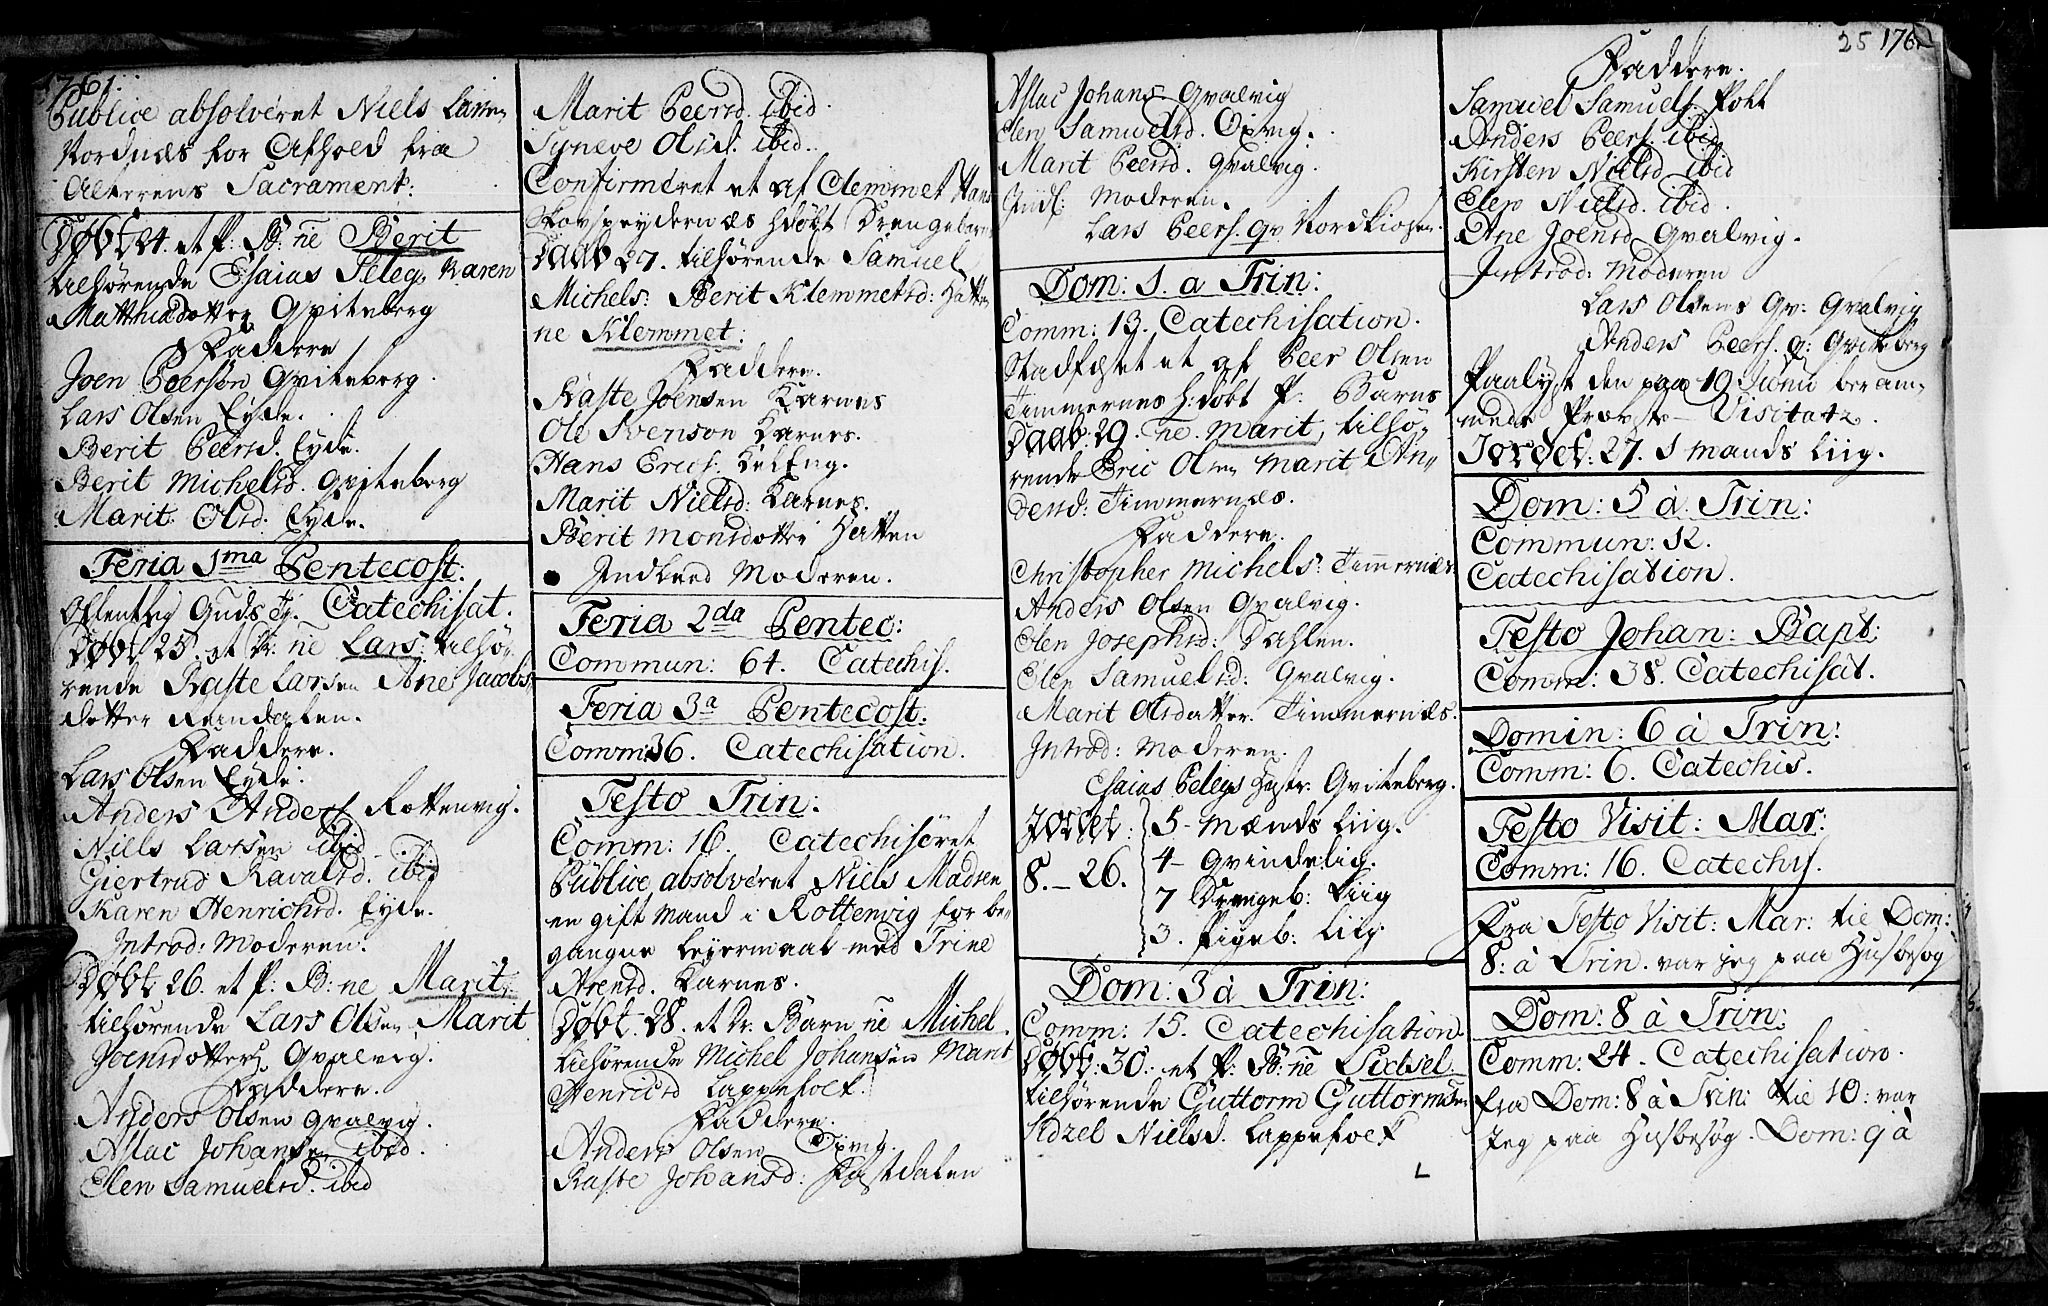 1761.
Publice absolveret Niels Larsen
Nordnæs for Afhold fra
Alterens Sacrament:
Døbt 24. et P: B: ne Berit
tilhørende Esaias Peleg, Karen
Matthiædotter Qviteberg
Faddere
Joen Peersøn Qviteberg.
Lars Olsen Eyde.
Berit Peersd. Eyde.
Berit Michelsd. Qviteberg
Marit Olsd. Eyde.
Feria 1ma Pentecost:
Offentlig Guds Tj. Catechisat.
Døbt 25. et Dr: ne Lars: tilhø,
rende Raste Larsen Ane Jacobs,
dotter Reindalen.
Faddere.
Lars Olsen Eyde.
Anders Anders. Rottenvig.
Niels Larsen ibid
Giertrud Ravalsd. ibid
Karen Henrichsd. Eyde.
Introd: Moderen.
Døbt 26. et P: B: ne Marit,
tilhørende Lars Olsen, Marit
Joensdotter Qvalvig.
Faddere.
Anders Olsen Qvalvig.
Aslac Johansen ibid.
Elen Samuelsd. ibid
Marit Peersd. ibid.
Syneve Olsd. ibid.
Confirmeret et af Clemmet Hans
Skovspeydernæs hdøbt Drengebarns
Daab 27. tilhørende Samuel
Michels: Berit Klemmetsd: Hatten
ne Klemmet:
Faddere.
Raste Joensen Karnes
Ole Svenson Karnes.
Hans Erics. KilEng.
Marit Nielsd: Karnes.
Berit Monsdotter Hatten
Indleed Moderen.
Feria 2da Pentec:
Commun: 64. Catechis.
Feria 3a Pentecost.
Comm: 36. Catechisation.
Festo Trin:
Comm: 16. Catechiseret
Publice absolveret Niels Madsen
en gift Mand i Rottenvig for be,
gangne Leyermaal med Trine
Arensd. Karnes.
Døbt. 28. et Dr: Barn ne Michel
tilhørende Michel Johansen Marit
Henricsd Lappefolk.
Faddere.
Anders Olsen Oxvig.
Raste Johansd: Fastdalen
Aslac Johans. Qvalvig
Elen Samuelsd. Oxvig.
Marit Peersd. Qvalvig.
Indl: Moderen.
Lars Peers. Qv Nordkiosen.
Dom: 1. a Trin:
Comm: 13. Catechisation.
Stadfæstet et af Peer Olsen
Timmernes H:døbt P. Barns
Daab: 29. ne. Marit, tilhø,
rende Eric Olsen Marit An,
dersd: Timmernæs.
Faddere.
Christopher Michels: Timmernæs
Anders Olsen Qvalvig.
Elen Josephsd: Dahlen.
Elen Samuelsd: Qvalvig.
Marit Olsdatter. Timmernæs.
Introd: Moderen.
Esaias Pelegs Hustr: Qviteberg.
Jordet: 5- Mænds Liig.
8.-26. 4- Qvindelig.
7 Drengeb: Liig
3. Pigeb: Liig
Dom: 3 à Trin:
Comm: 15. Catechisation.
Døbt: 30. et P: B: ne Sidsel
tilhørende Guttorm Guttormsen
Sidzel Nielsd. Lappefolk
L
25 1761
Faddere.
Samuel Samuels.
Anders Peers. ibid
Kirsten Nielsd ibid
Elen Nielsd. ibid.
Ane Joensd Qvalvig.
Introd: Moderen
Lars Olsens Qv: Qvalvig
Anders Peers. q: Qviteberg
Paalyst den paa 19 Junii beram,
mede Provste-Visitatz.
Jordet: 27. 1 Mands Liig.
Dom: 5 à Trin:
Commun: 12.
Catechisation.
Festo Johan: Bapt:
Comm: 38. Catechisat.
Domin: 6 à Trin:
Comm: 6. Catechis.
Festo Visit: Mar:
Comm: 16. Catechis.
Fra Festo Visit: Mar: til Dom:
8: à Trin. var jeg paa Husbesøg
Dom: 8 à Trin:
Comm: 24. Catechisation.
fra Dom: 8 à Trin: til 10: var
Jeg paa Husbesøg. Dom: 9 à